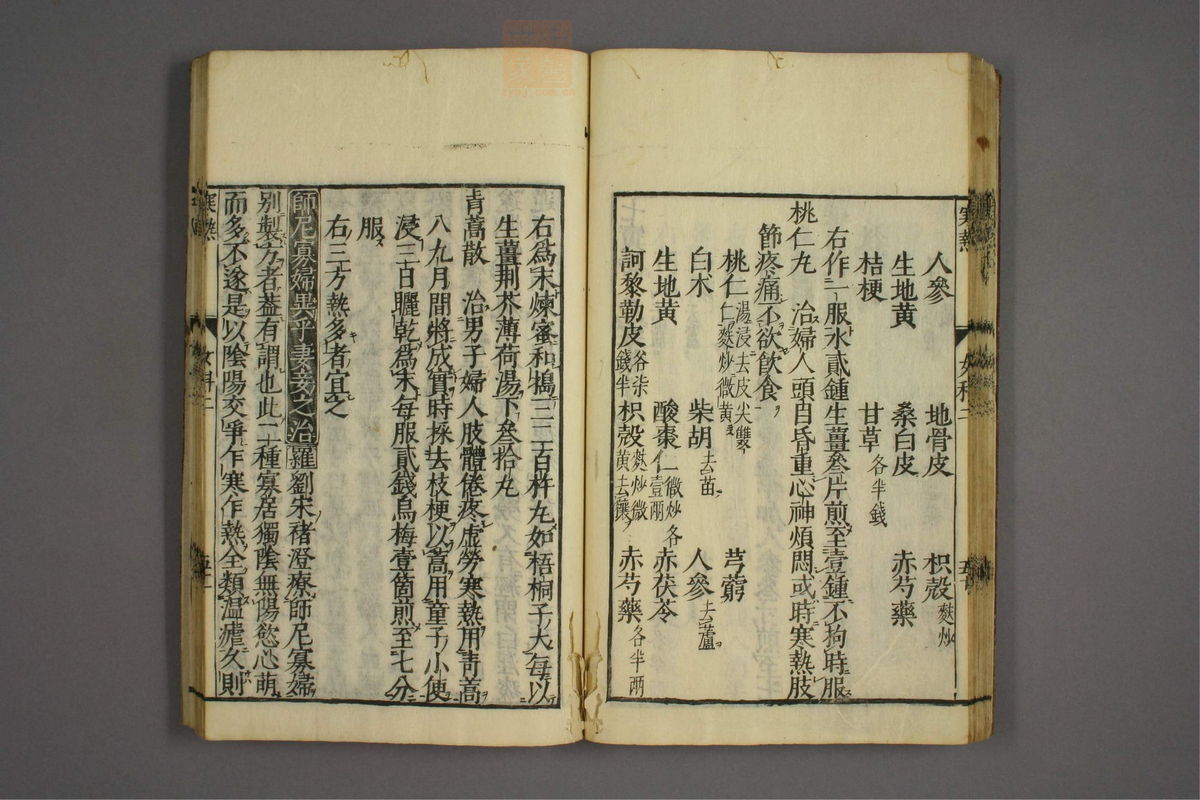 人參　地骨皮　枳殼麩炒
生地黃　桑白皮　赤芍藥
桔梗　甘草各半錢
右作一服水貳鍾生薑叄片煎至壹鍾不拘時服
桃仁丸　治婦人頭目昏重心神煩悶或時寒熱肢
節疼痛不欲飲食
桃仁湯浸去皮尖雙仁麩炒微黃　芎藭
白朮　柴胡去苗　人參去蘆
生地黃　酸棗仁微炒各一壹兩　赤茯苓
訶黎勒皮　枳殼麩炒微黃去穰　赤芍藥各半兩
右爲末煉蜜和搗三二百杵丸如梧桐子大每以
生薑荆芥薄荷湯下叄拾丸
青蒿散　治男子婦人肢體倦疼虛勞寒熱用青蒿
八九月間將成實時採去枝梗以蒿用童子小便
浸三日曬乾爲末每服貳錢烏梅壹箇煎至七分
服
右三方熱多者宜之
師尼寡婦異乎妻妾之治羅劉宋褚澄療師尼寡婦
別製方者蓋有謂也此二種寡居獨陰無陽慾心萌
而多不遂是以陰陽交爭乍寒乍熱全類温瘧久則
寒熱　女科二